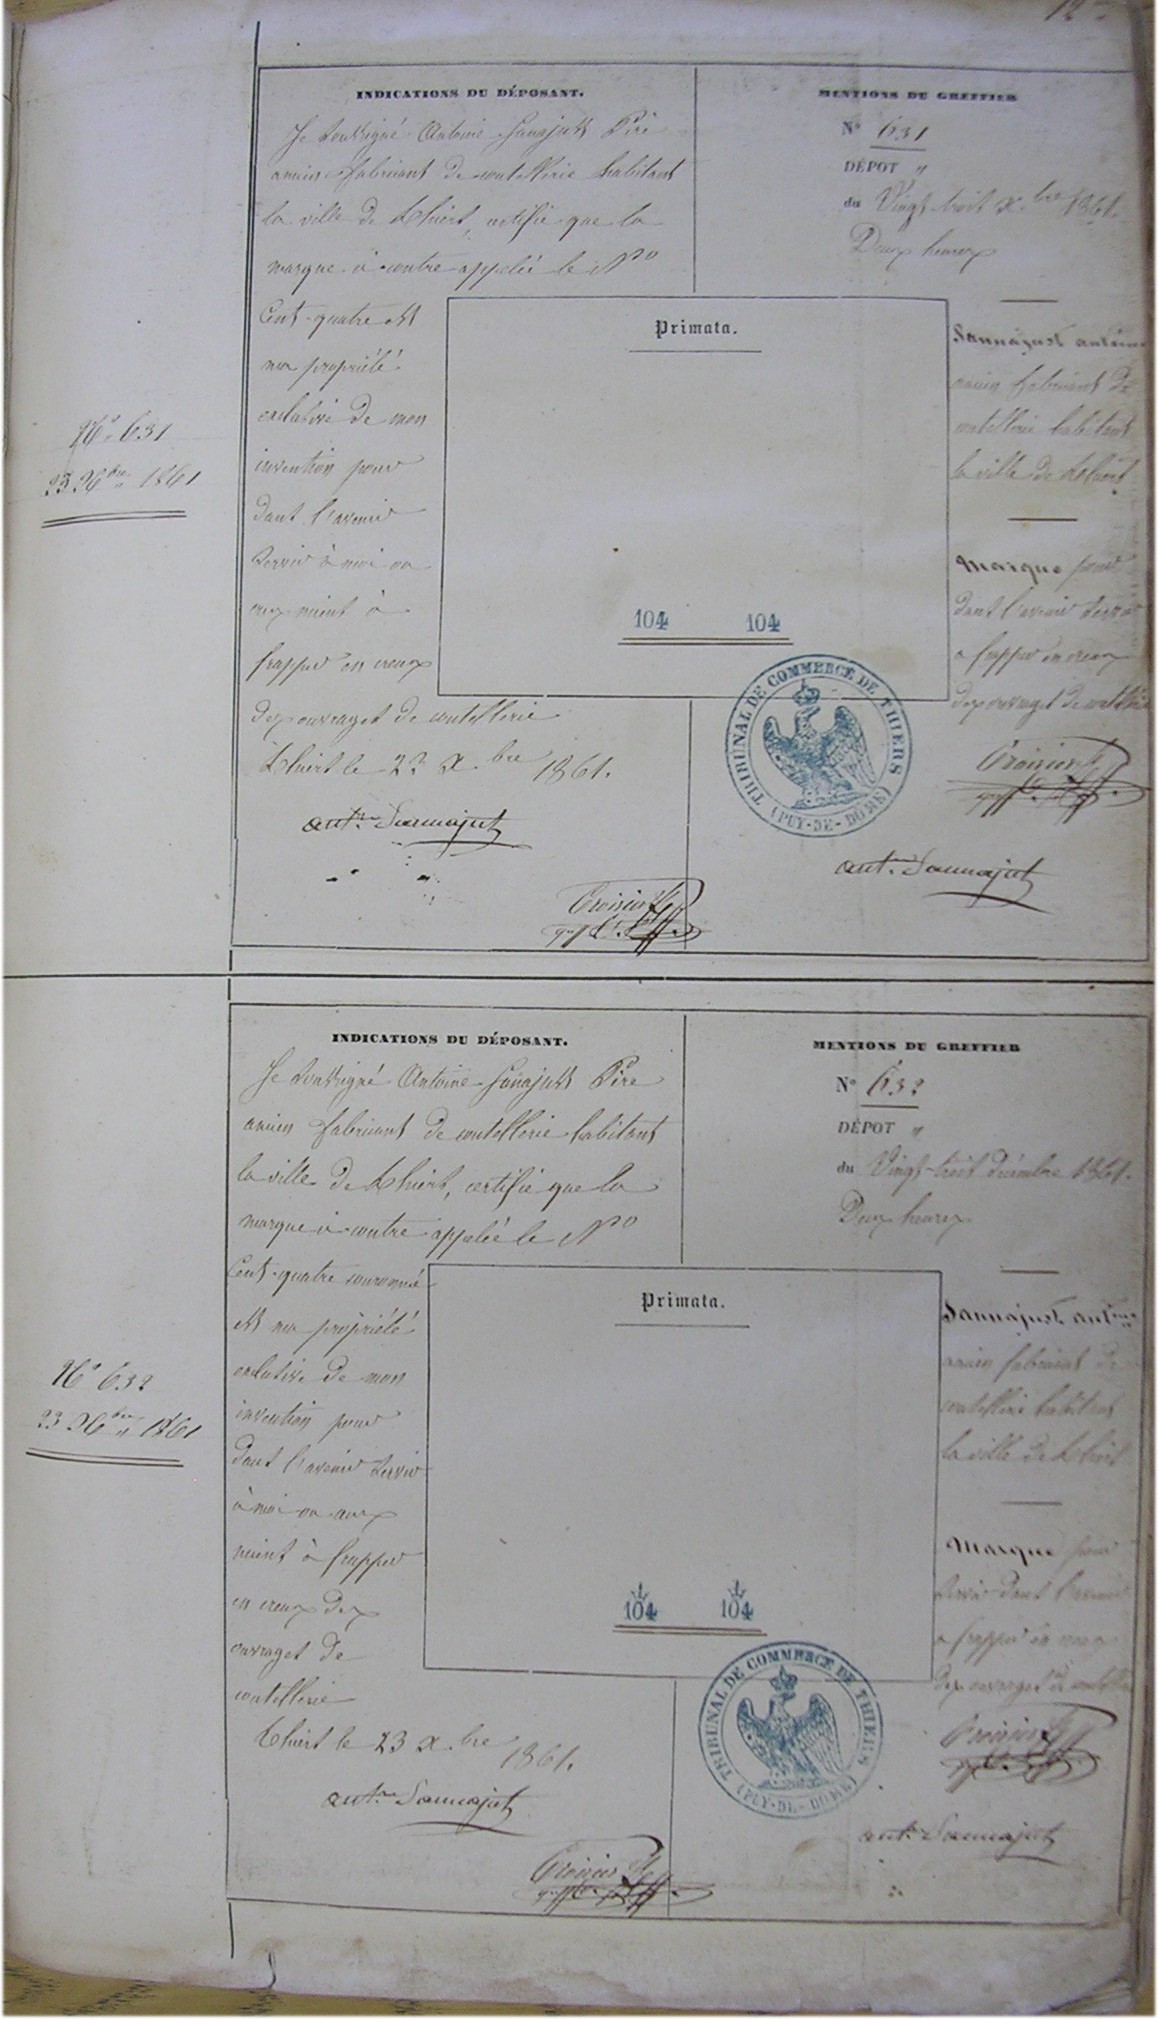 12
INDICATIONS DU DÉPOSANT.
Je soussigné Antoine Sanajust Père
ancien fabricant de coutellerie habitant
la ville de Thiers, certifie que la
marque ci-contre appelée le No
Cent-quatre est
ma propriété
exclusive de mon
invention pour
dans l'avenir
servir à moi ou
aux miens à
frapper en creux
des ouvrages de coutellerie
Thiers le 23 Xbre 1861.
antne Sannajust
Croizier
MENTIONS DU GREFFIER
N° 631
DÉPOT "
du Vingt trois Xbre 1861.
Deux heures
No 631
23 Xbre 1861
Primata.
104 104
TRIBUNAL DE COMMERCE DE THIERS
(PUY-DE-DOME)
Sannajust antoine
ancien fabricant de
coutellerie habitant
la ville de Thiers
Marque pour
dans l'avenir servir
a frapper en creux
des ouvrages de coutellerie
Croizier
antne Sannajust
INDICATIONS DU DÉPOSANT.
Je soussigné Antoine Sanajust Père
ancien fabricant de coutellerie habitant
la ville de Thiers, certifie que la
marque ci-contre appelée le No
Cent-quatre couronné
est ma propriété
exclusive de mon
invention pour
dans l'avenir servir
à moi ou aux
miens à frapper
en creux des
ouvrages de
coutellerie
Thiers le 23 Xbre 1861.
antne Sannajust
Croizier
MENTIONS DU GREFFIER
N° 632
DÉPOT "
du Vingt-trois décembre 1861.
Deux heures
No 632
23 Xbre 1861
Primata.
104 104
TRIBUNAL DE COMMERCE DE THIERS
(PUY-DE-DOME)
Sannajust antne
ancien fabricant de
coutellerie habitant
la ville de Thiers
Marque pour
servir dans l'avenir
a frapper en creux
des ouvrages de coutellerie
Croizier
antne Sannajust